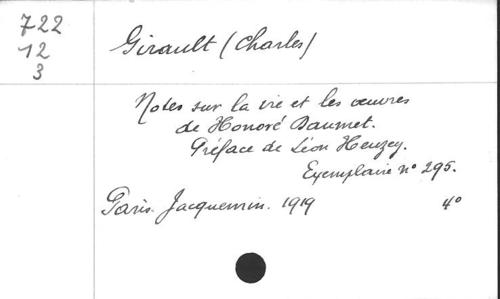 722
12
3
Girault (Charles)
Notes sur la vie et les œuvres
de Honoré Daumet.
Préface de Léon Heuzey.
Exemplaire n° 295.
Paris. Jacquemin. 1919 4°